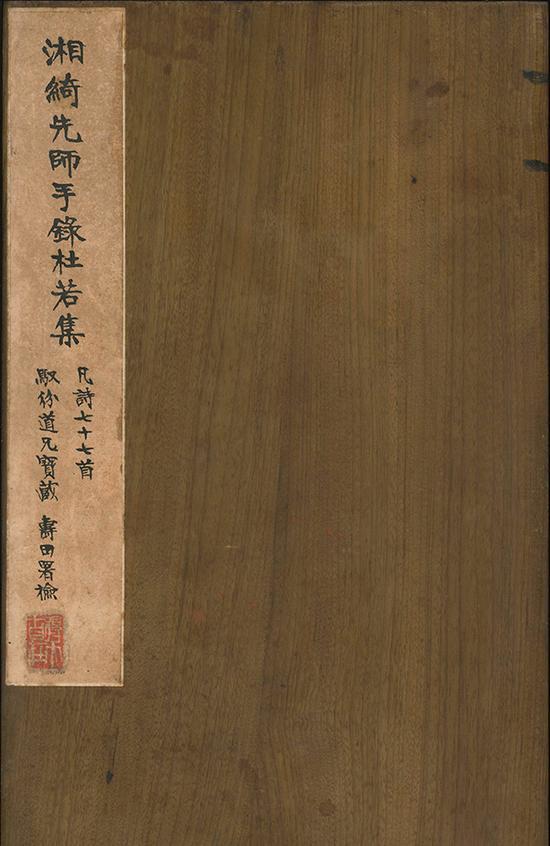 湘綺先師手錄杜若集
凡詩七十七首
馭份道兄寶藏 壽田署檢